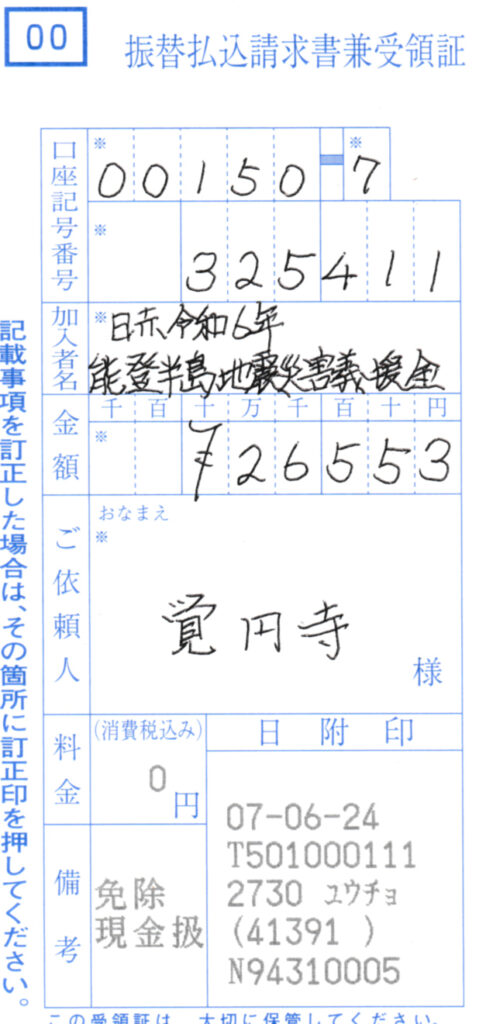 00
振替払込請求書兼受領証
口座記号番号
※
00150-7
※
※
325411
加入者名
※
日赤令和6年
能登半島地震災害義援金
金額
千百十万千百十円
※
¥26553
ご依頼人
おなまえ
※
覚円寺
様
料金
(消費税込み)
0
円
備考
免除
現金扱
日附印
07-06-24
T501000111
2730 ユウチョ
(41391 )
N94310005
記載事項を訂正した場合は、その箇所に訂正印を押してください。
この受領証は、大切に保管してください。